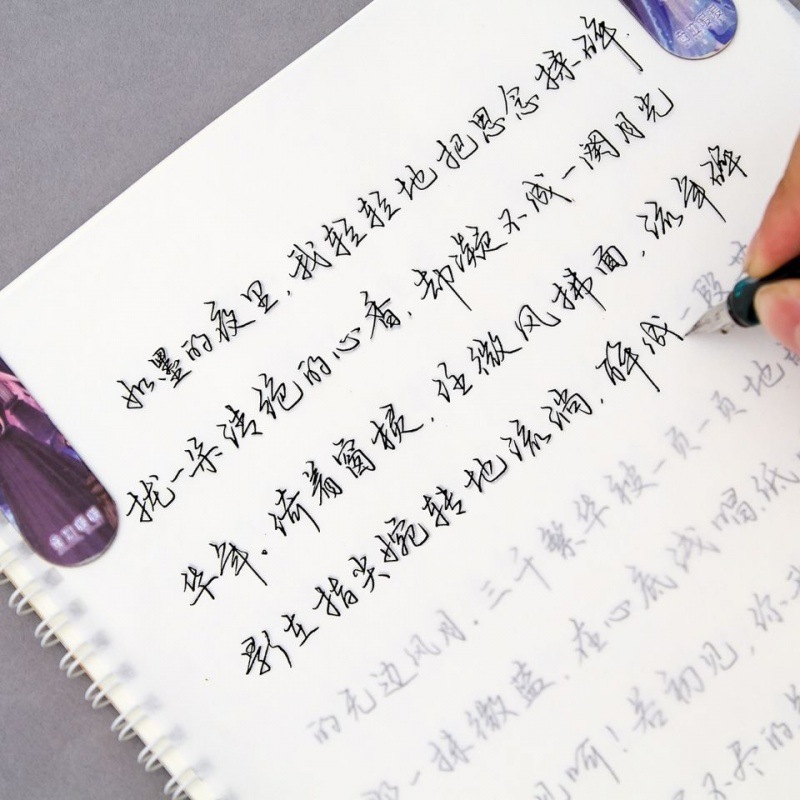 如墨的夜里,我轻轻地把思念揉碎.
拢一朵清绝的心香,却凝不成一阕月光
华年。倚着窗棂,任微风拂面,流年碎
影在指尖婉转地流淌,醉成一段
的无边风月.三千繁华被一页一页地
那一抹微蓝,在心底浅唱.低
见呵!若初见,你
不尽的